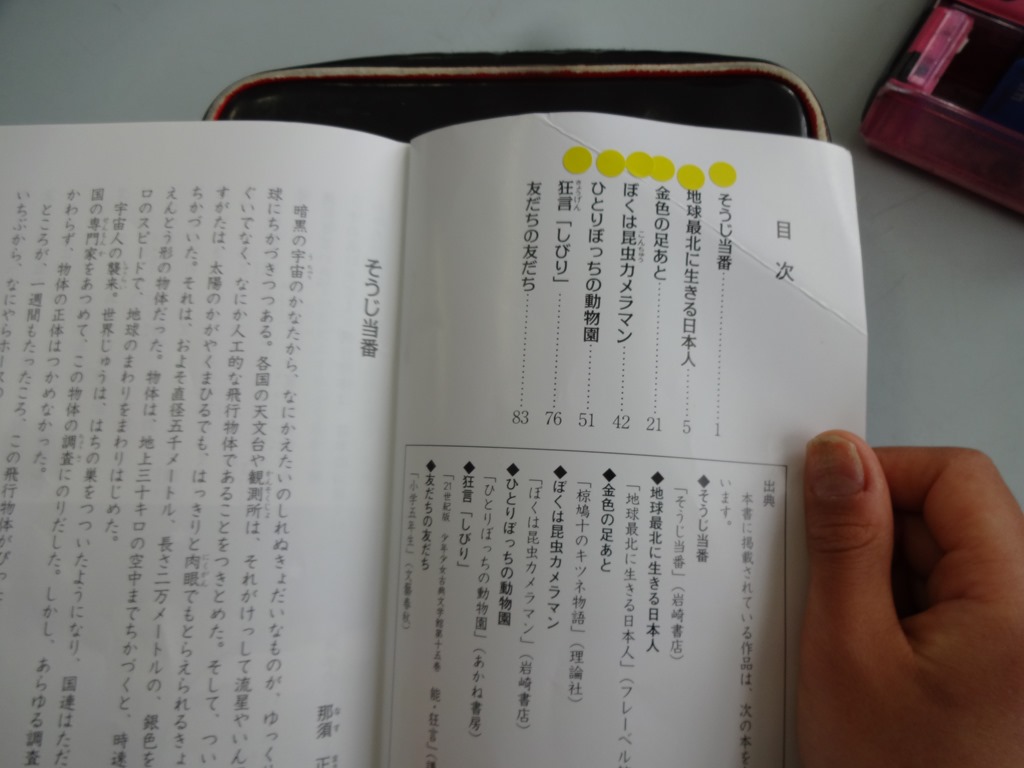 目次
そうじ当番 1
地球最北に生きる日本人 5
金色の足あと 21
ぼくは昆虫カメラマン 42
ひとりぼっちの動物園 51
狂言「しびり」 76
友だちの友だち 83
出典
本書に掲載されている作品は、次の本を
います。
◆そうじ当番
「そうじ当番」(岩崎書店)
◆地球最北に生きる日本人
「地球最北に生きる日本人」(フレーベル
◆金色の足あと
「椋鳩十のキツネ物語」(理論社)
◆ぼくは昆虫カメラマン
「ぼくは昆虫カメラマン」(岩崎書店)
◆ひとりぼっちの動物園
「ひとりぼっちの動物園」(あかね書房)
◆狂言「しびり」
「21世紀版 少年少女古典文学館第十五巻 能・狂言」
◆友だちの友だち
「小学五年生」(文藝春秋)
そうじ当番
那須 正
暗黒の宇宙のかなたから、なにかえたいのしれぬきょだいなものが、ゆっく
球にちかづきつつある。各国の天文台や観測所は、それがけっして流星やいん
ぐいでなく、なにか人工的な飛行物体であることをつきとめた。そして、つい
すがたは、太陽のかがやくまひるでも、はっきりと肉眼でもとらえられるきょ
ちかづいた。それは、およそ直径五千メートル、長さ二万メートルの、銀色を
えんとう形の物体だった。物体は、地上三十キロの空中までちかづくと、時速
ロのスピードで、地球のまわりをまわりはじめた。
宇宙人の襲来。世界じゅうは、はちの巣をつついたようになり、国連はただ
国の専門家をあつめて、この物体の調査にのりだした。しかし、あらゆる調査
かわらず、物体の正体はつかめなかった。
ところが、一週間もたったころ、この飛行物体が
いちぶから、なにやら